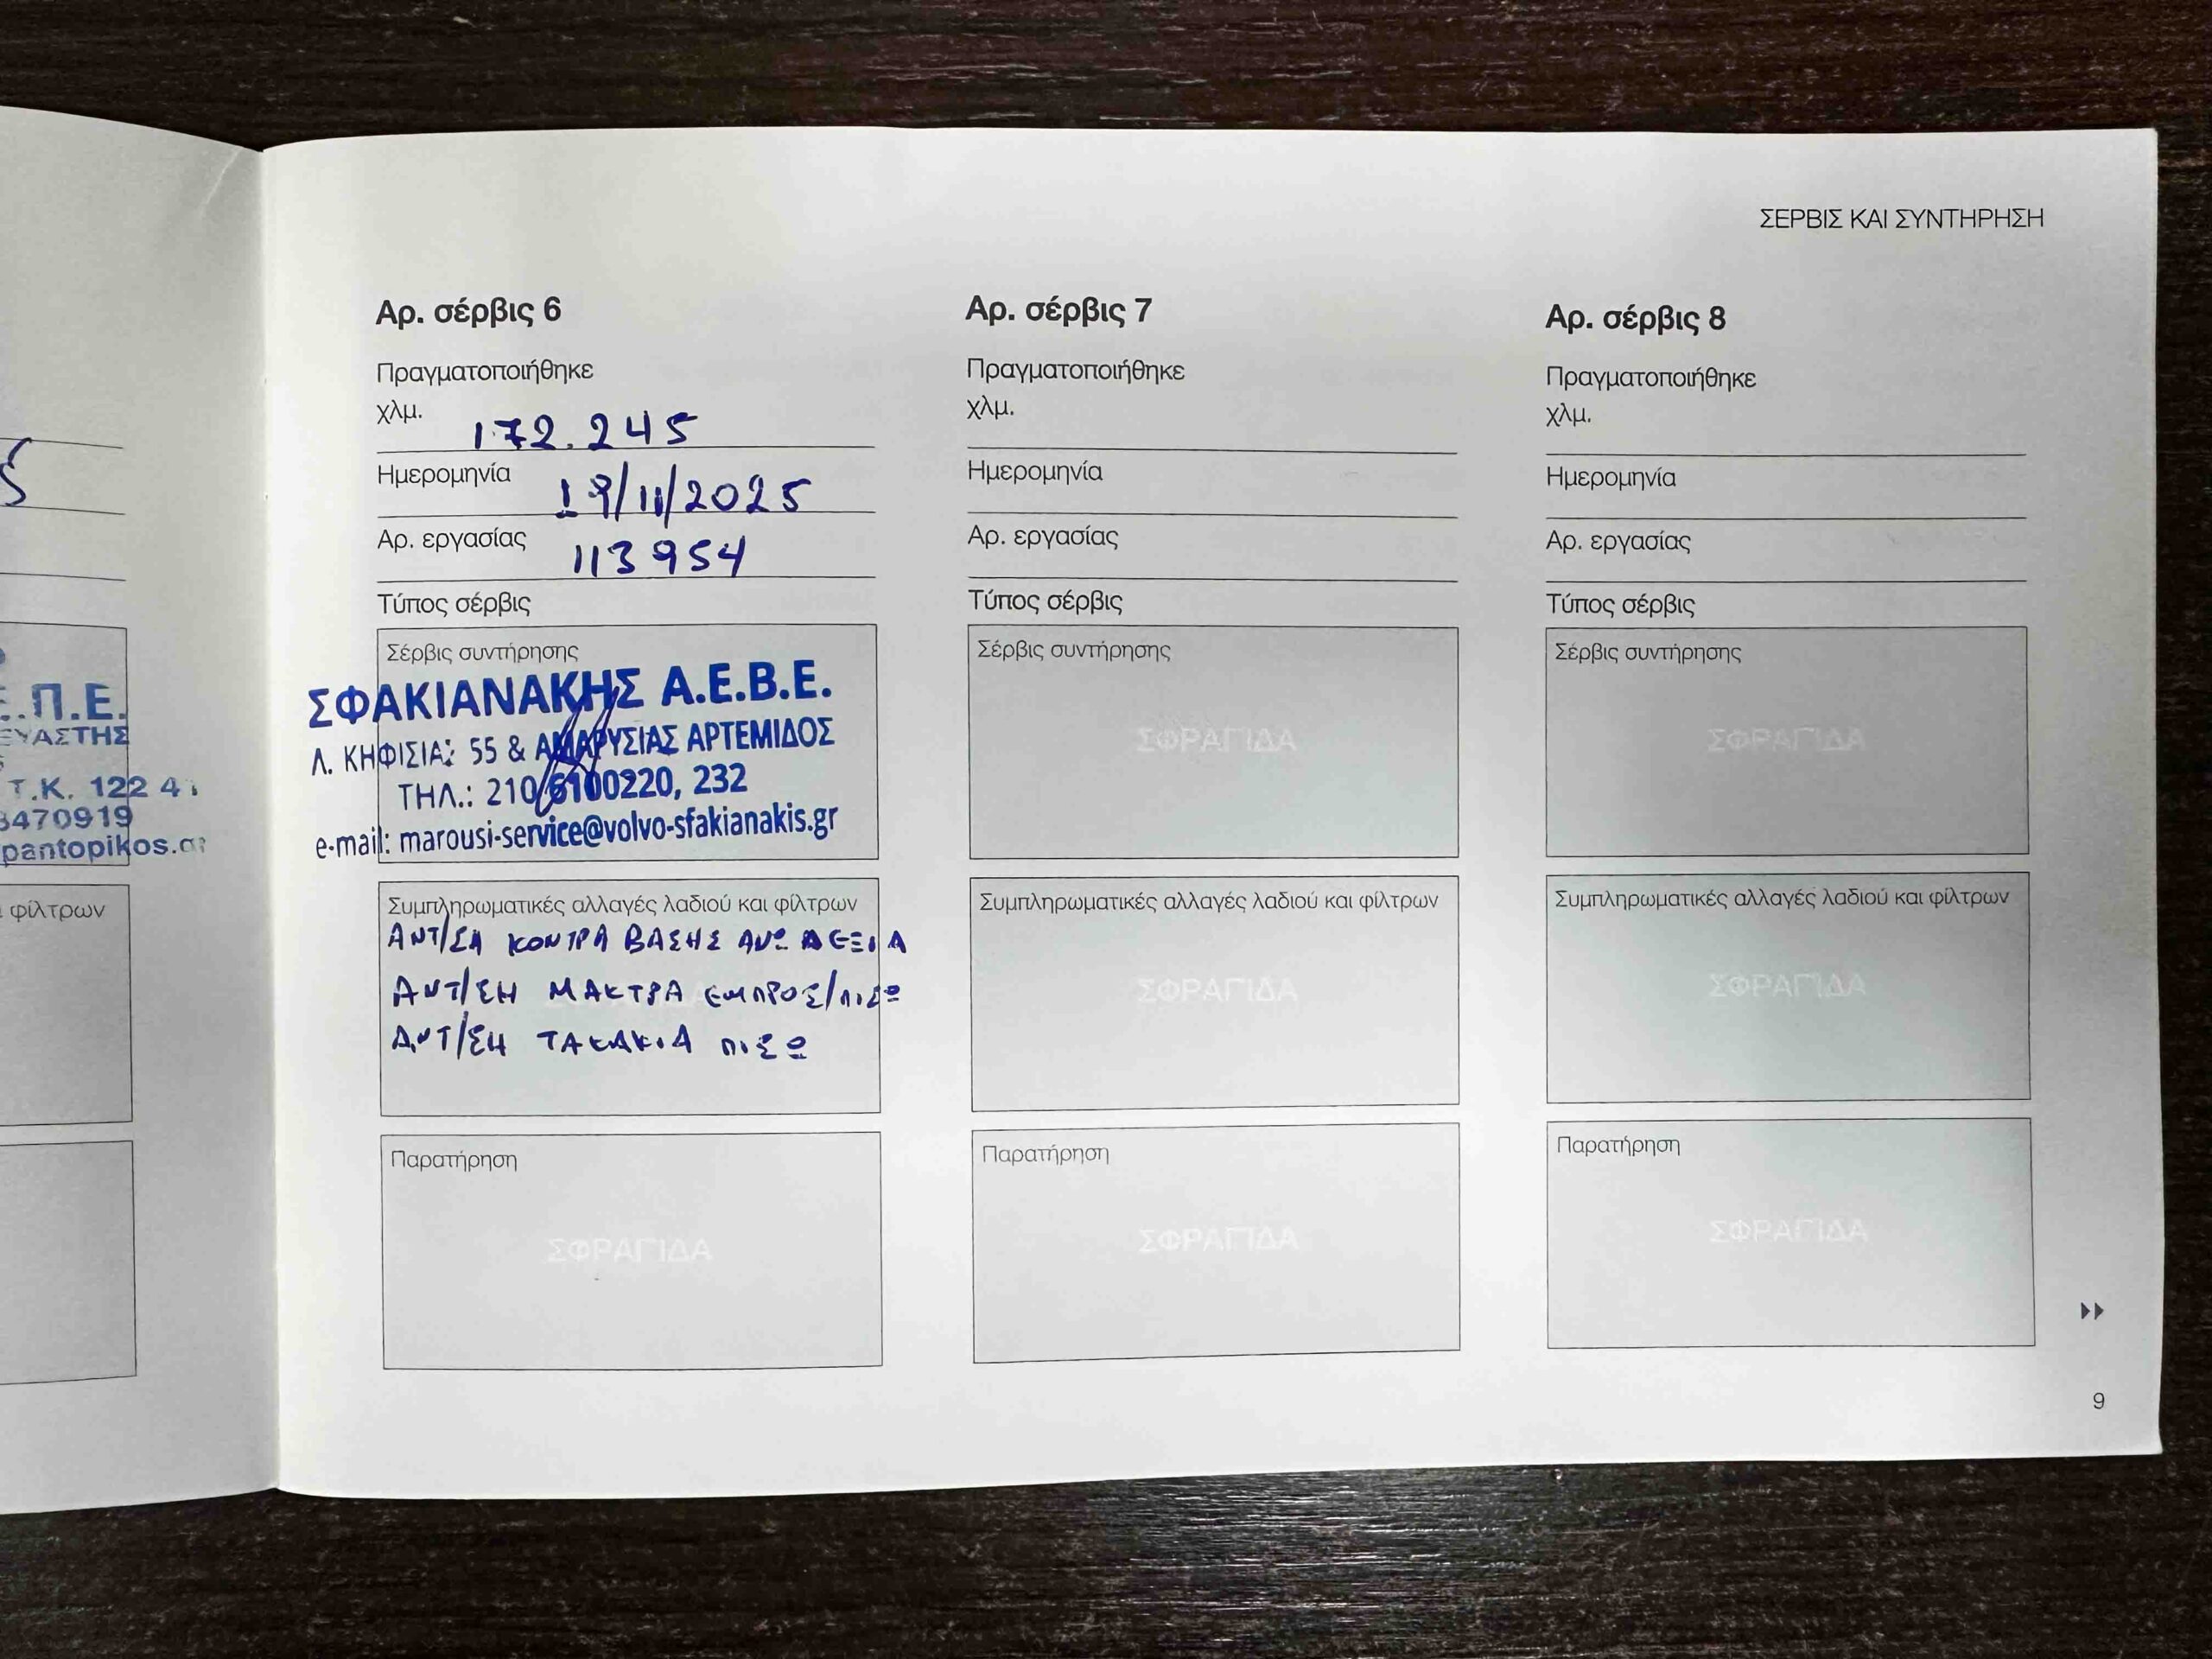 ΣΕΡΒΙΣ ΚΑΙ ΣΥΝΤΗΡΗΣΗ
Ε.Π.Ε.
ΕΥΑΣΤΗΣ
Τ.Κ. 122 41
3470919
pantopikos.gr
φίλτρων
Αρ. σέρβις 6
Πραγματοποιήθηκε
χλμ. 172.245
Ημερομηνία 19/11/2025
Αρ. εργασίας 113954
Τύπος σέρβις
Σέρβις συντήρησης
ΣΦΑΚΙΑΝΑΚΗΣ Α.Ε.Β.Ε.
Λ. ΚΗΦΙΣΙΑΣ 55 & ΑΜΑΡΥΣΙΑΣ ΑΡΤΕΜΙΔΟΣ
ΤΗΛ.: 210 6100220, 232
e-mail: marousi-service@volvo-sfakianakis.gr
Συμπληρωματικές αλλαγές λαδιού και φίλτρων
ΑΝΤ/ΣΗ ΚΟΝΤΡΑ ΒΑΣΗΣ ΑΝΩ ΔΕΞΙΑ
ΑΝΤ/ΣΗ ΜΑΚΤΡΑ ΕΜΠΡΟΣ/ΠΙΣΩ
ΑΝΤ/ΣΗ ΤΑΚΑΚΙΑ ΠΙΣΩ
Παρατήρηση
ΣΦΡΑΓΙΔΑ
Αρ. σέρβις 7
Πραγματοποιήθηκε
χλμ.
Ημερομηνία
Αρ. εργασίας
Τύπος σέρβις
Σέρβις συντήρησης
ΣΦΡΑΓΙΔΑ
Συμπληρωματικές αλλαγές λαδιού και φίλτρων
ΣΦΡΑΓΙΔΑ
Παρατήρηση
ΣΦΡΑΓΙΔΑ
Αρ. σέρβις 8
Πραγματοποιήθηκε
χλμ.
Ημερομηνία
Αρ. εργασίας
Τύπος σέρβις
Σέρβις συντήρησης
ΣΦΡΑΓΙΔΑ
Συμπληρωματικές αλλαγές λαδιού και φίλτρων
ΣΦΡΑΓΙΔΑ
Παρατήρηση
ΣΦΡΑΓΙΔΑ
9